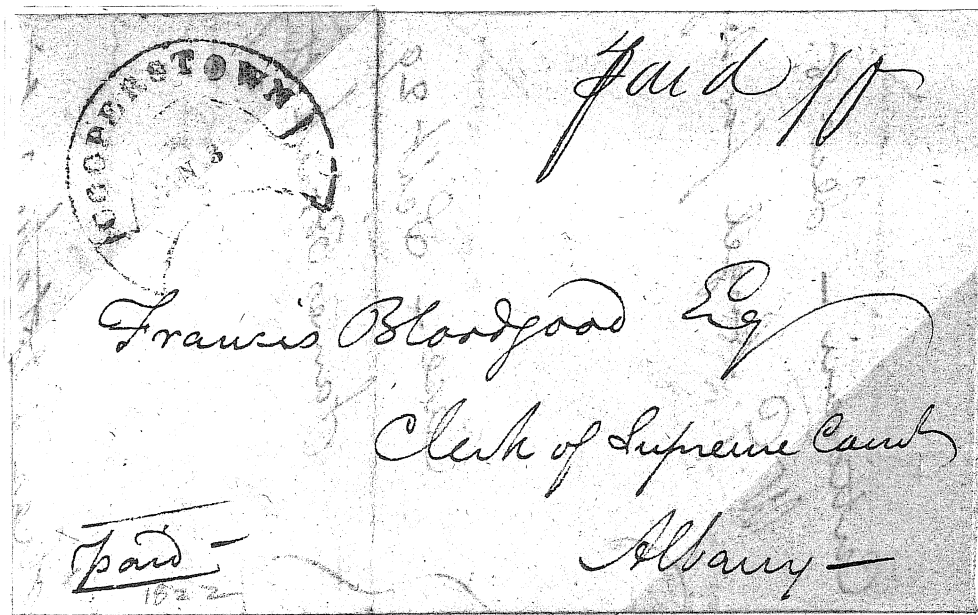 COOPERSTOWN
N 3
paid 10
Francis Bloodgood Esq
Clerk of Supreme Court
Albany
paid
1822